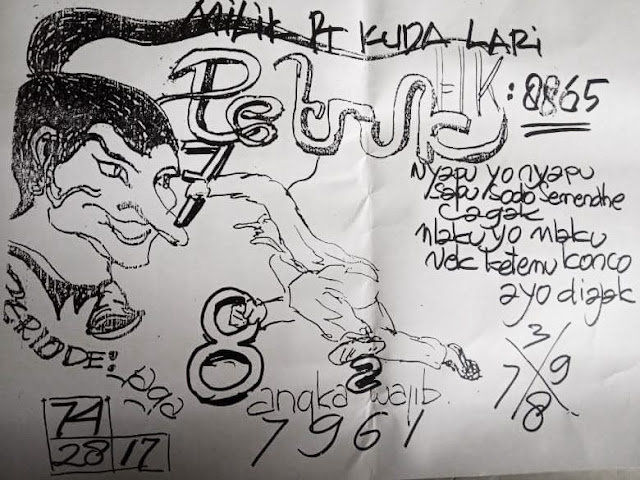 MILIK Pt KUDA LARI
HK: 8865
7
Nyapu yo nyapu
sapu sodo semendhe
cagak
Mlaku yo mlaku
Nek ketemu konco
ayo diajak
PERIODE:
8
2
angka wajib
7961
3
7 9
8
74
28 17